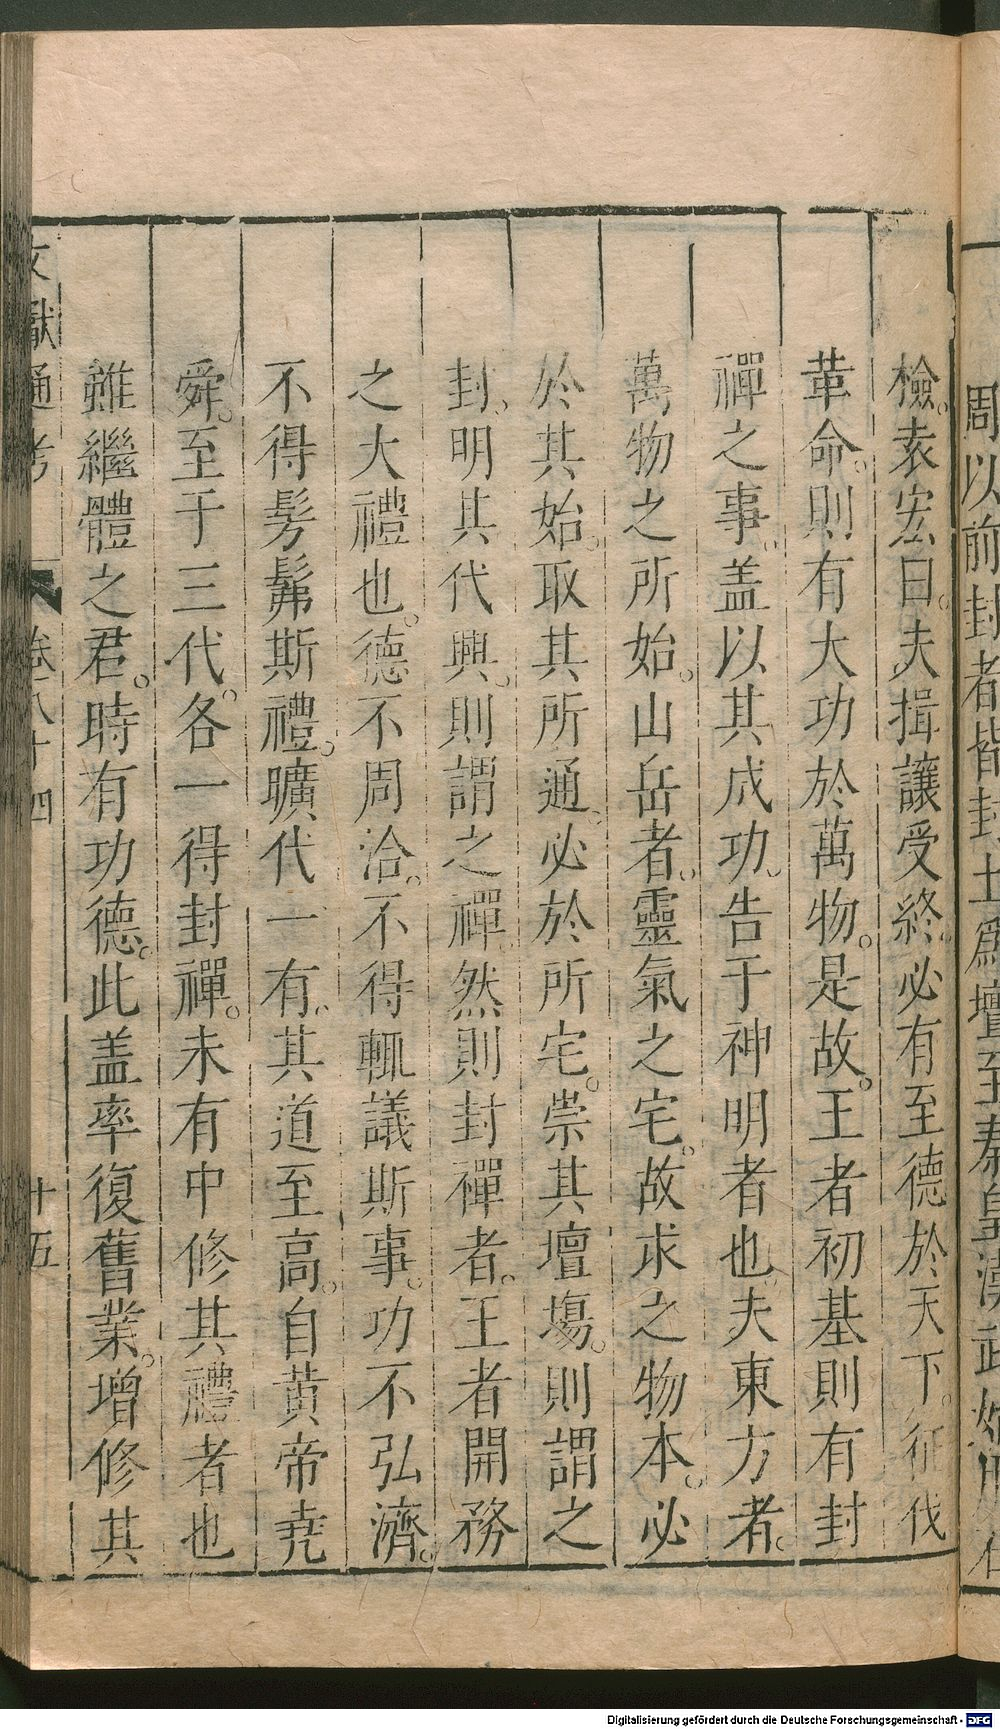 周以前封者皆封土爲壇至秦皇漢武
檢。袁宏曰。夫揖讓受終。必有至德於天下。征伐
革命。則有大功於萬物。是故。王者初基則有封
禪之事。盖以其成功。告于神明者也。夫東方者。
萬物之所始。山岳者。靈氣之宅。故求之物本。必
於其始。取其所通。必於所宅。崇其壇塲。則謂之
封。明其代興。則謂之禪。然則封禪者。王者開務
之大禮也。德不周洽。不得輒議斯事。功不弘濟。
不得髣髴斯禮。曠代一有。其道至高。自黄帝堯
舜。至于三代。各一得封禪。未有中修其禮者也
雖繼體之君。時有功德。此盖率復舊業。增修其
文獻通考 卷八十四 十五
Digitalisierung gefördert durch die Deutsche Forschungsgemeinschaft - DFG